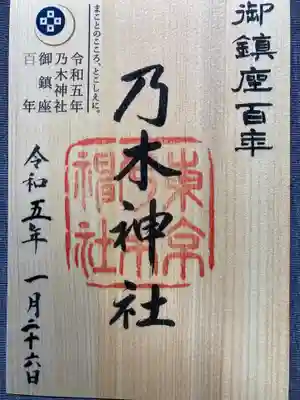 御鎮座百年
乃木神社
東京乃木神社
まことのこころ、とこしえに。
令和五年
乃木神社
御鎮座
百年
令和五年 一月二十六日